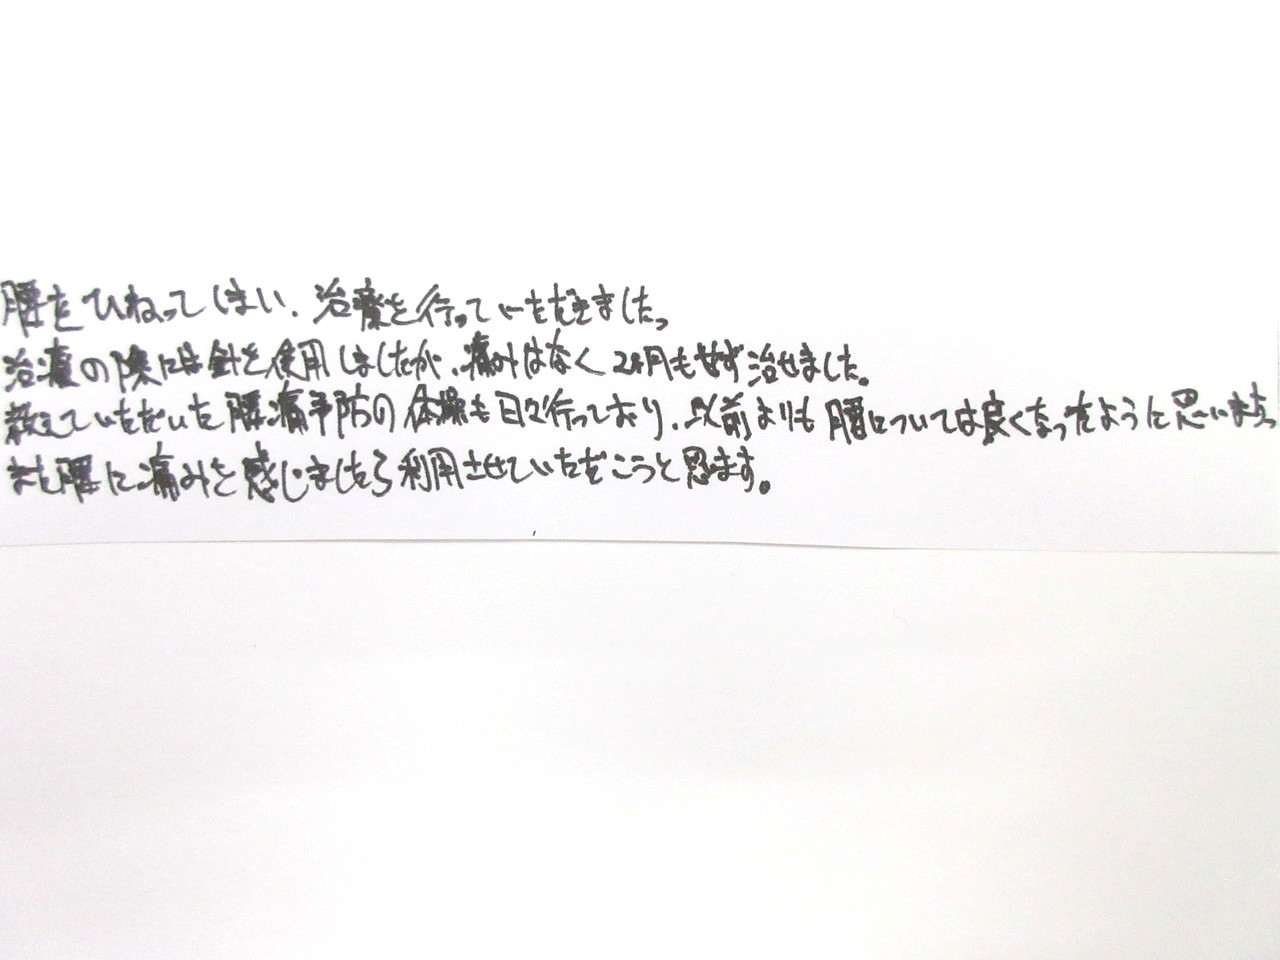 腰をひねってしまい、治療を行っていただきました。
治療の際には針を使用しましたが、痛みはなく2ヶ月もせず治せました。
教えていただいた腰痛予防の体操も日々行っており、以前よりも腰については良くなったように思います。
また腰に痛みを感じましたら利用させていただこうと思ます。